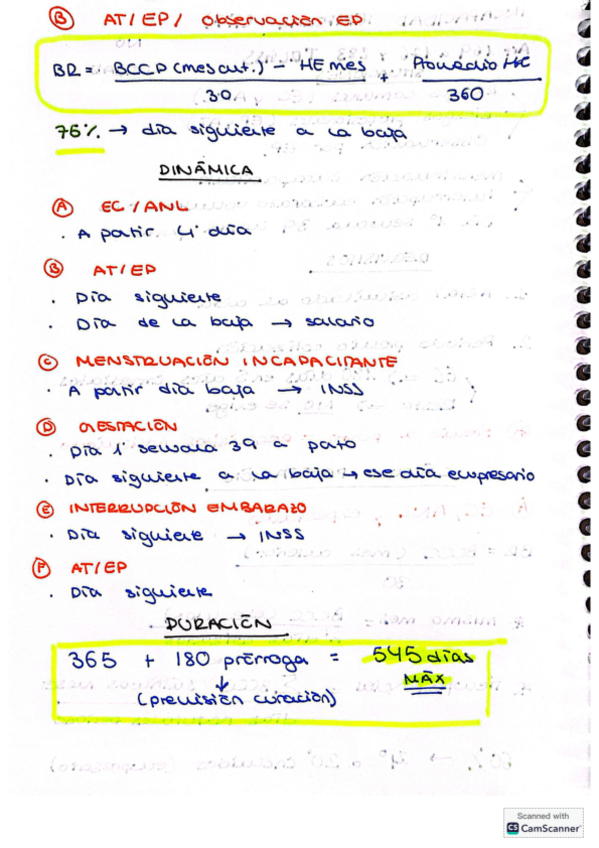 B AT/EP/ Observación EP
BR = BCCP (mes ant.) - HE mes + Promedio HE
30 360
75% → día siguiente a la baja
DINÁMICA
A EC/ANL
. A partir 4º día
B AT/EP
. Día siguiente
. Día de la baja → salario
C MENSTRUACIÓN INCAPACITANTE
. A partir día baja → INSS
D GESTACIÓN
. Día 1º semana 39 a parto
. Día siguiente a la baja → ese día empresario
E INTERRUPCIÓN EMBARAZO
. Día siguiente → INSS
F AT/EP
. Día siguiente
DURACIÓN
365 + 180 prórroga = 545 días
↓ MÁX
(previsión curación)
Scanned with
CS CamScanner